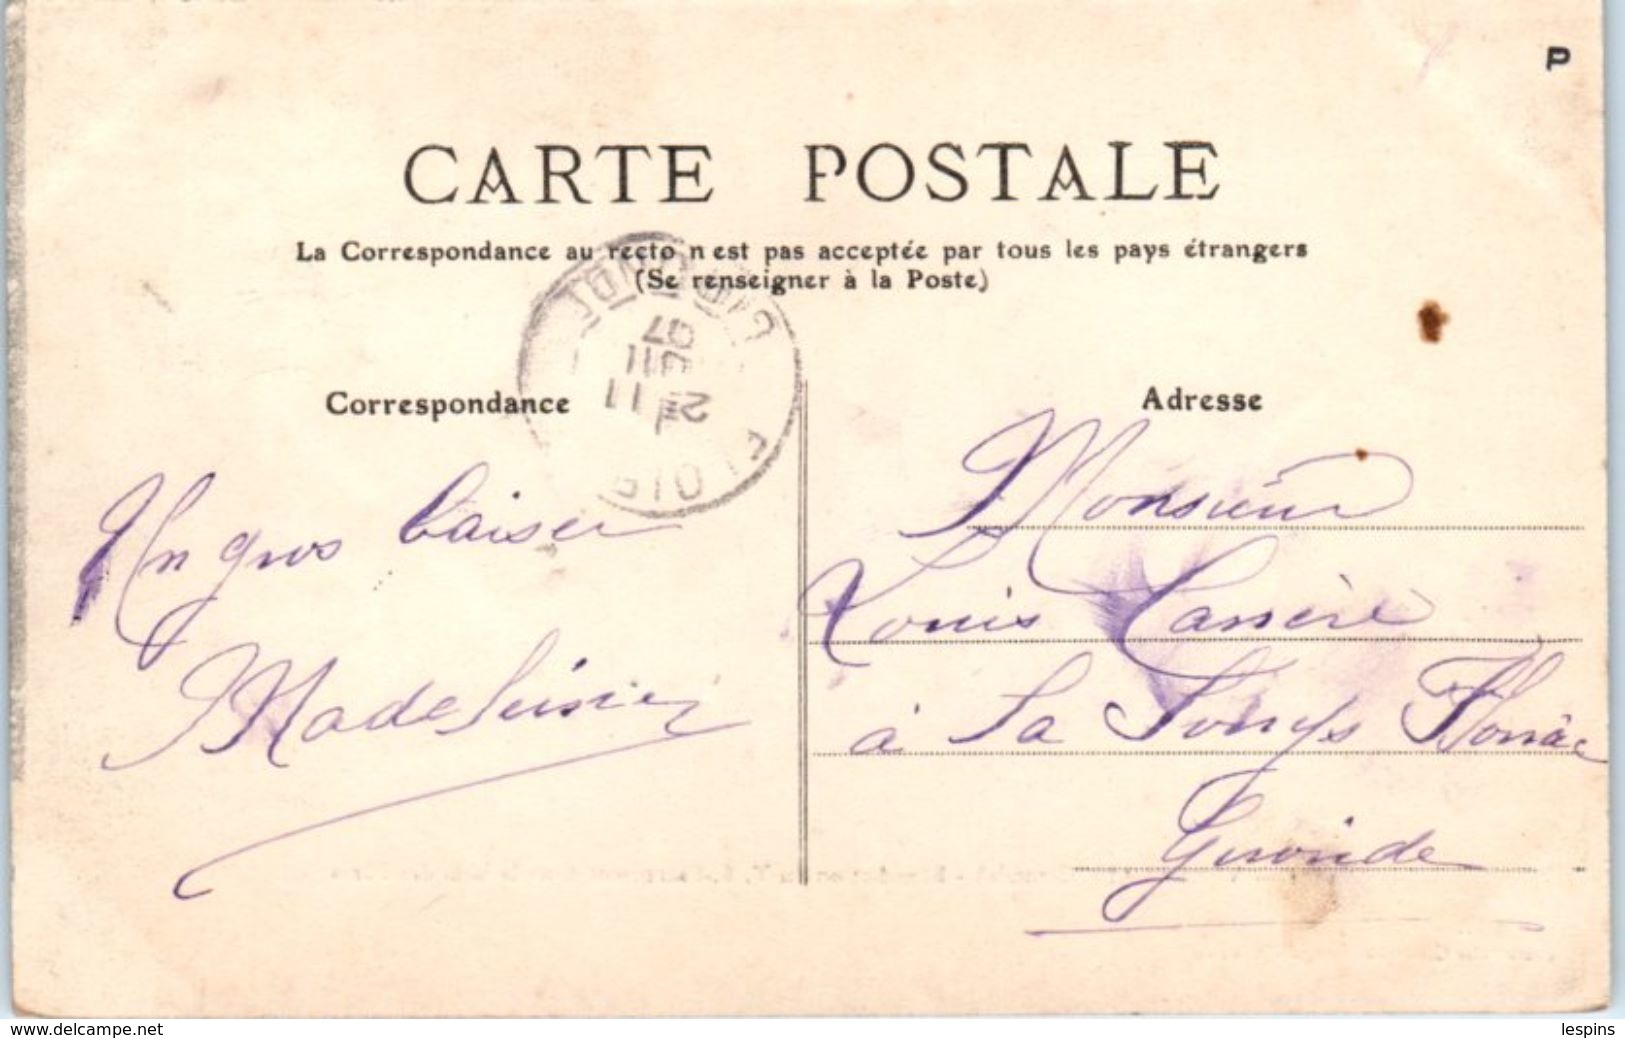 P
CARTE POSTALE
La Correspondance au recto n'est pas acceptée par tous les pays étrangers
(Se renseigner à la Poste)
Correspondance
Adresse
GIRONDE
07
2
Un gros baiser
Madeleine
Monsieur
Louis Lassère
à La
Gironde
www.delcampe.net
lespins